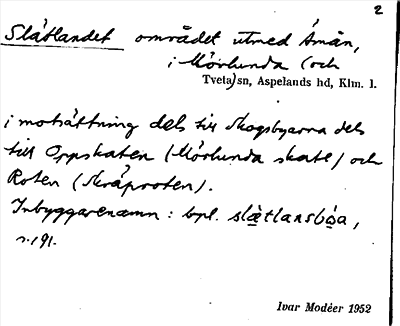 2
Slätlandet området utmed Ämån,
i Mörlunda (och
Tveta) sn, Aspelands hd, Klm. l.
i motsättning dels till Skogsbyarna dels
till Oppskaten (Mörlunda skate) och
Roten (Skräproten).
Inbyggarenamn: bpl. slätlansboa,
s. 191.
Ivar Modéer 1952